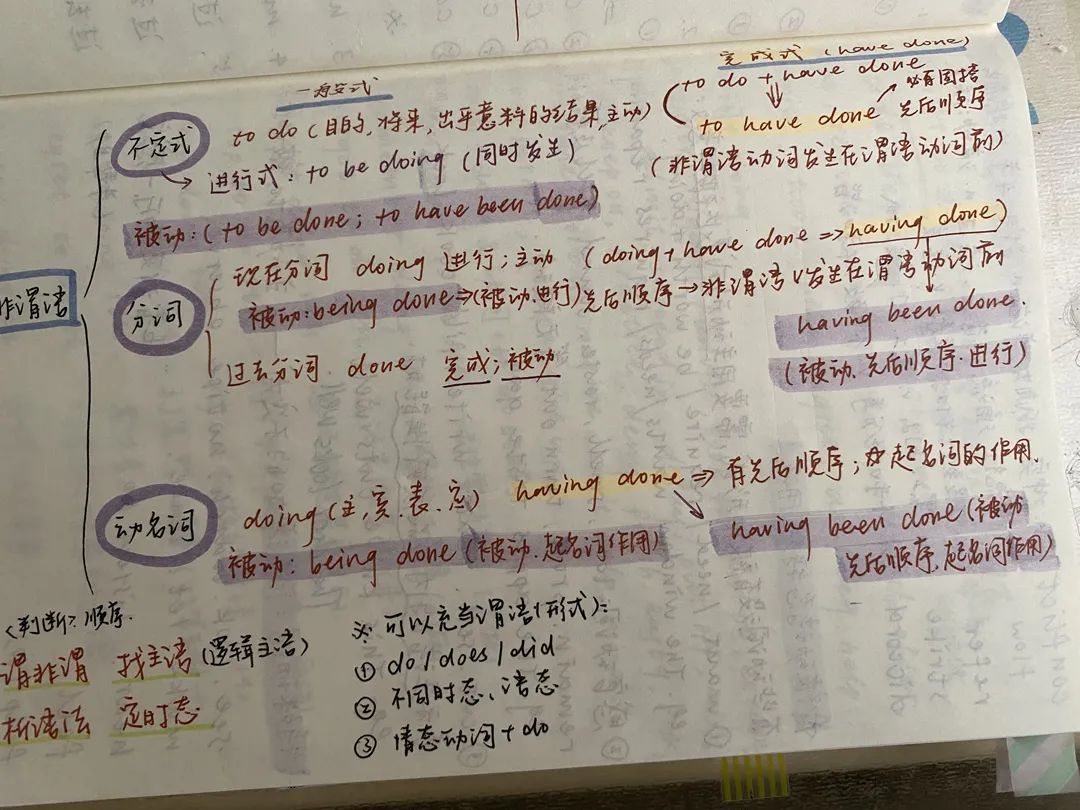 一般式
完成式 (have done)
to do + have done
必有固搭
to have done 先后顺序
(非谓语动词发生在谓语动词前)
非谓语
不定式
to do (目的,将来,出乎意料的结果,主动)
进行式: to be doing (同时发生)
被动:(to be done; to have been done)
分词
现在分词 doing 进行;主动 (doing+have done ⇒ having done)
被动:being done⇒(被动.进行) 先后顺序→非谓语v发生在谓语动词前
having been done.
(被动.先后顺序.进行)
过去分词. done 完成;被动
动名词
doing (主,宾.表.定) having done ⇒ 有先后顺序;起名词的作用.
被动: being done (被动.起名词作用)
having been done (被动
先后顺序.起名词作用)
<判断>顺序.
谓非谓 找主语 (逻辑主语)
析语法 定时态
※ 可以充当谓语(形式):
① do/does/did
② 不同时态、语态
③ 情态动词+do